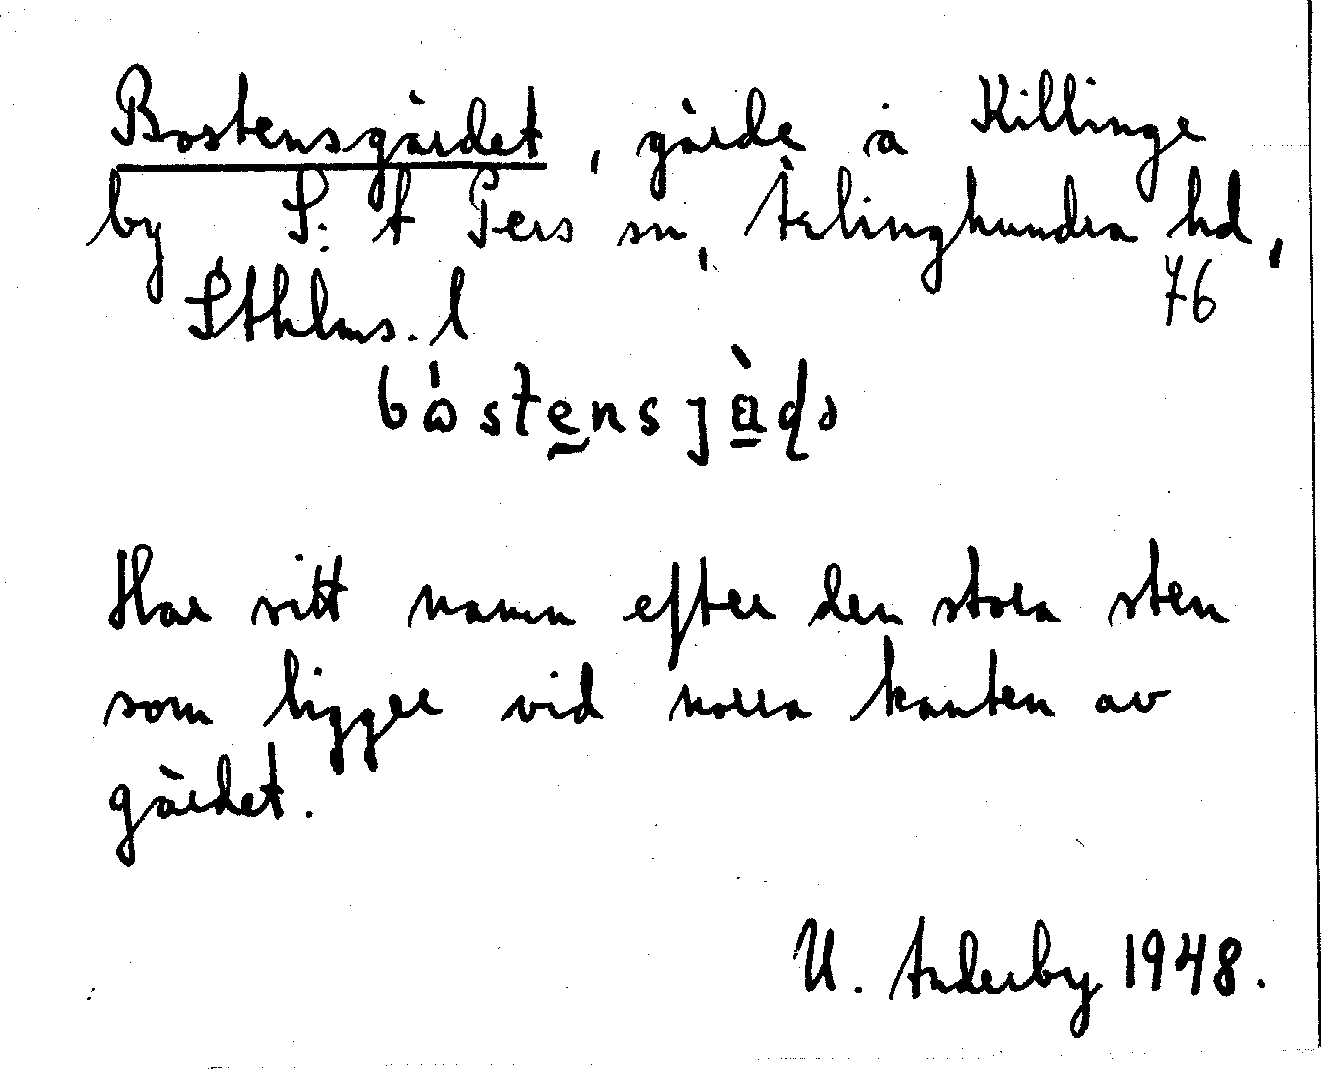 Bostensgärdet, gärde å Killinge
by S:t Pers sn, Ärlinghundra hd,
Sthlms. l 76
bòstensjäds
Har sitt namn efter den stora sten
som ligger vid norra kanten av
gärdet.
U. Anderby 1948.